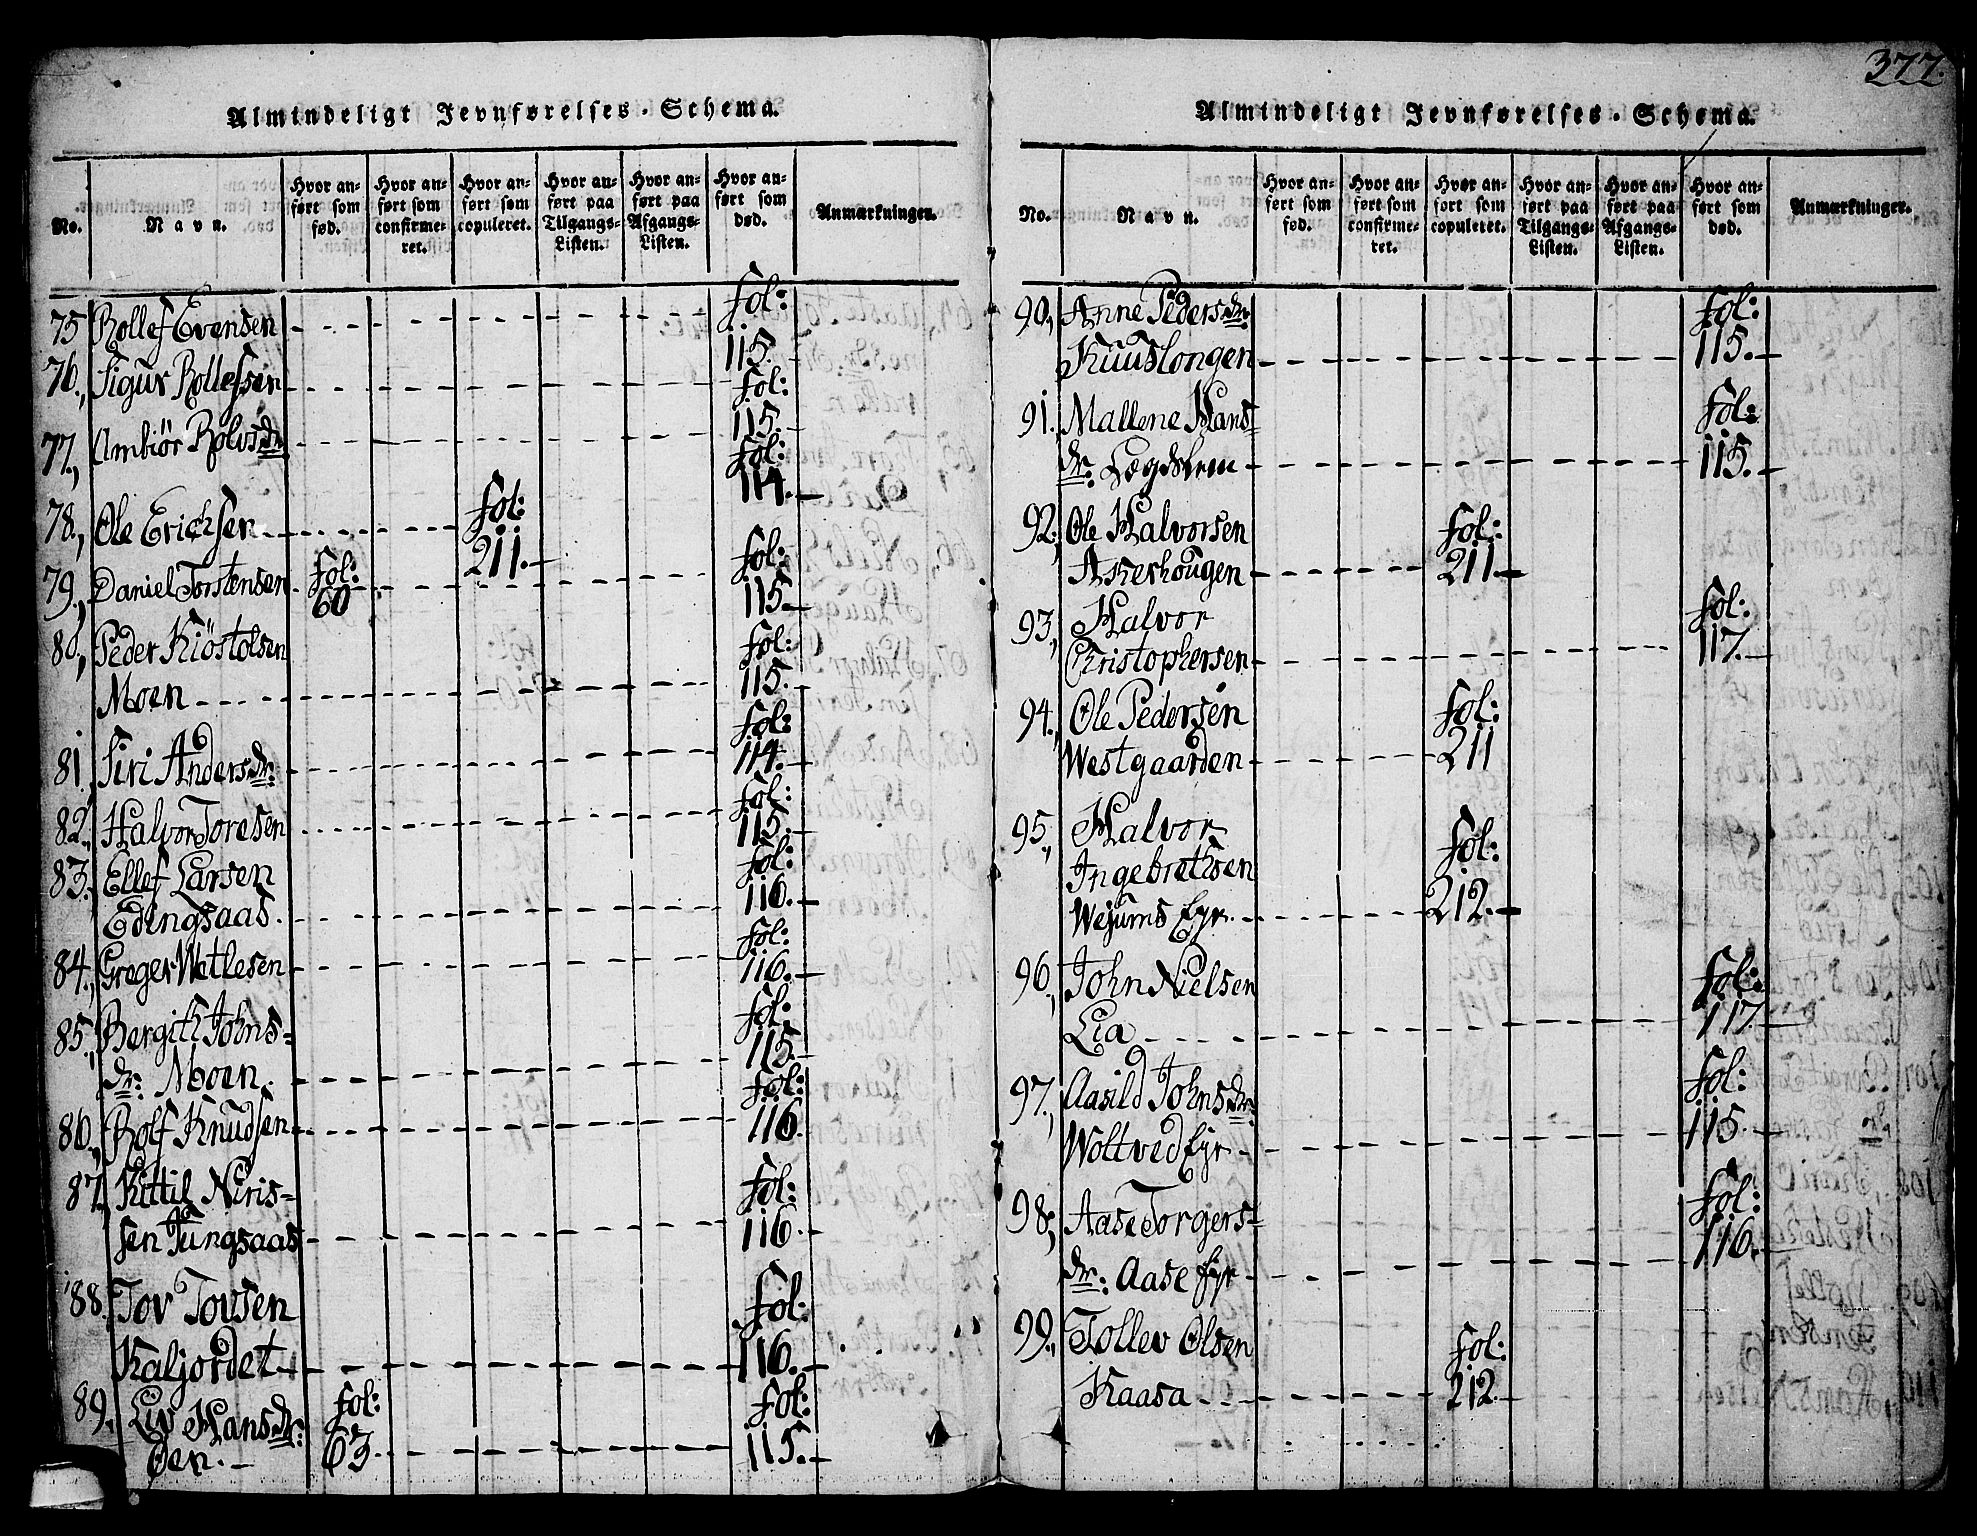 377.
Almindeligt Jevnførelses-Schema.
No.
Navn.
Hvor anført som fød.
Hvor anført som confirmeret.
Hvor anført som copuleret.
Hvor anført paa Tilgangs-Listen.
Hvor anført paa Afgangs-Listen.
Hvor anført som død.
Anmærkninger.
75 Rollef Evensen Fol: 115.
76., Sigur Rollefsen Fol: 115.
77., Ambiør Rolvsdr. Fol: 114.
78., Ole Erichsen Fol: 211.
79., Daniel Torstensen Fol: 60 Fol: 115
80., Peder Kiöstolsen
Moen Fol: 115.
81., Siri Andersdr: Fol: 114.
82., Halvor Toresen Fol: 115.
83., Ellef Larsen
Edingsaas. Fol: 116.
84., Greger Wetlesen Fol: 116.
85., Bergith Johns-
dr: Moen. Fol: 115.
86., Rolf Knudsen Fol: 116.
87., Kittil Niris-
sen Jungsaas Fol: 116.
88. Tov Tovsen
Kaljordet Fol: 116.
89. Liv Hansdr:
Øen. Fol: 63. Fol: 115.
Almindeligt Jevnførelses-Schema.
No.
Navn.
Hvor anført som fød.
Hvor anført som confirmeret.
Hvor anført som copuleret.
Hvor anført paa Tilgangs-Listen.
Hvor anført paa Afgangs-Listen.
Hvor anført som død.
Anmærkninger.
90., Anne Pedersdr:
Kuuslongen Fol: 115.
91., Mallene Hans-
dr: Lægdslem Fol: 115.
92., Ole Halvorsen
Askeshougen Fol: 211.
93., Halvor
Christophersen Fol: 117.
94., Ole Pedersen
Westgaarden Fol: 211
95., Halvor
Ingebrethsen
Wejums Eyr. Fol: 212.
96., John Nielsen
Lia Fol: 117
97., Aasild Johnsdr:
Woltved Eyr Fol: 115.
98., Aase Torgers-
dr: Aase Eyr Fol: 116.
99., Tollev Olsen
Kaasa Fol: 212.